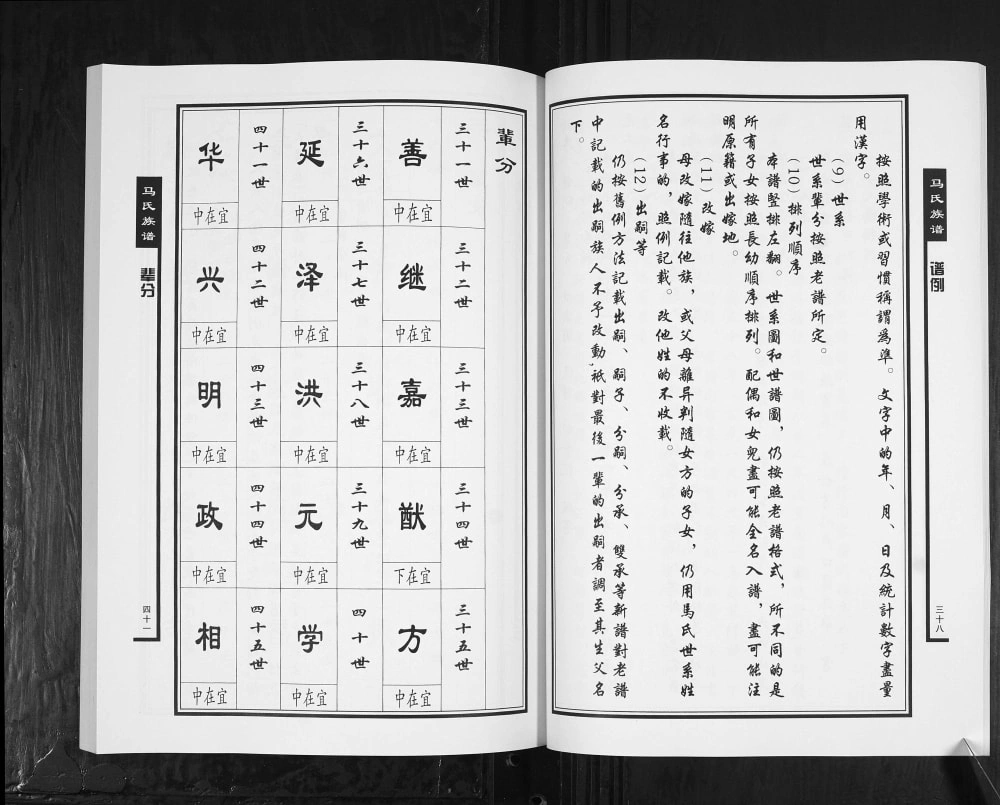 马氏族谱
谱例
三十八
按照學術或習慣稱謂為準。文字中的年、月、日及統計數字盡量
用漢字。
（9）世系
世系輩分按照老譜所定。
（10）排列順序
本譜豎排左翻。世系圖和世譜圖，仍按照老譜格式，所不同的是
所有子女按照長幼順序排列。配偶和女兒盡可能全名入譜，盡可能注
明原籍或出嫁地。
（11）改嫁
母改嫁隨往他族，或父母離异判隨女方的子女，仍用馬氏世系姓
名行事的，照例記載。改他姓的不收載。
（12）出嗣等
仍按舊例方法記載出嗣、嗣子、分嗣、分承、雙承等新譜對老譜
中記載的出嗣族人不予改動，祇對最後一輩的出嗣者調至其生父名
下。
輩分
三十一世
善
宜在中
三十二世
继
宜在中
三十三世
嘉
宜在中
三十四世
猷
宜在下
三十五世
方
宜在中
三十六世
延
宜在中
三十七世
泽
宜在中
三十八世
洪
宜在中
三十九世
元
宜在中
四十世
学
宜在中
四十一世
华
宜在中
四十二世
兴
宜在中
四十三世
明
宜在中
四十四世
政
宜在中
四十五世
相
宜在中
马氏族谱
辈分
四十一